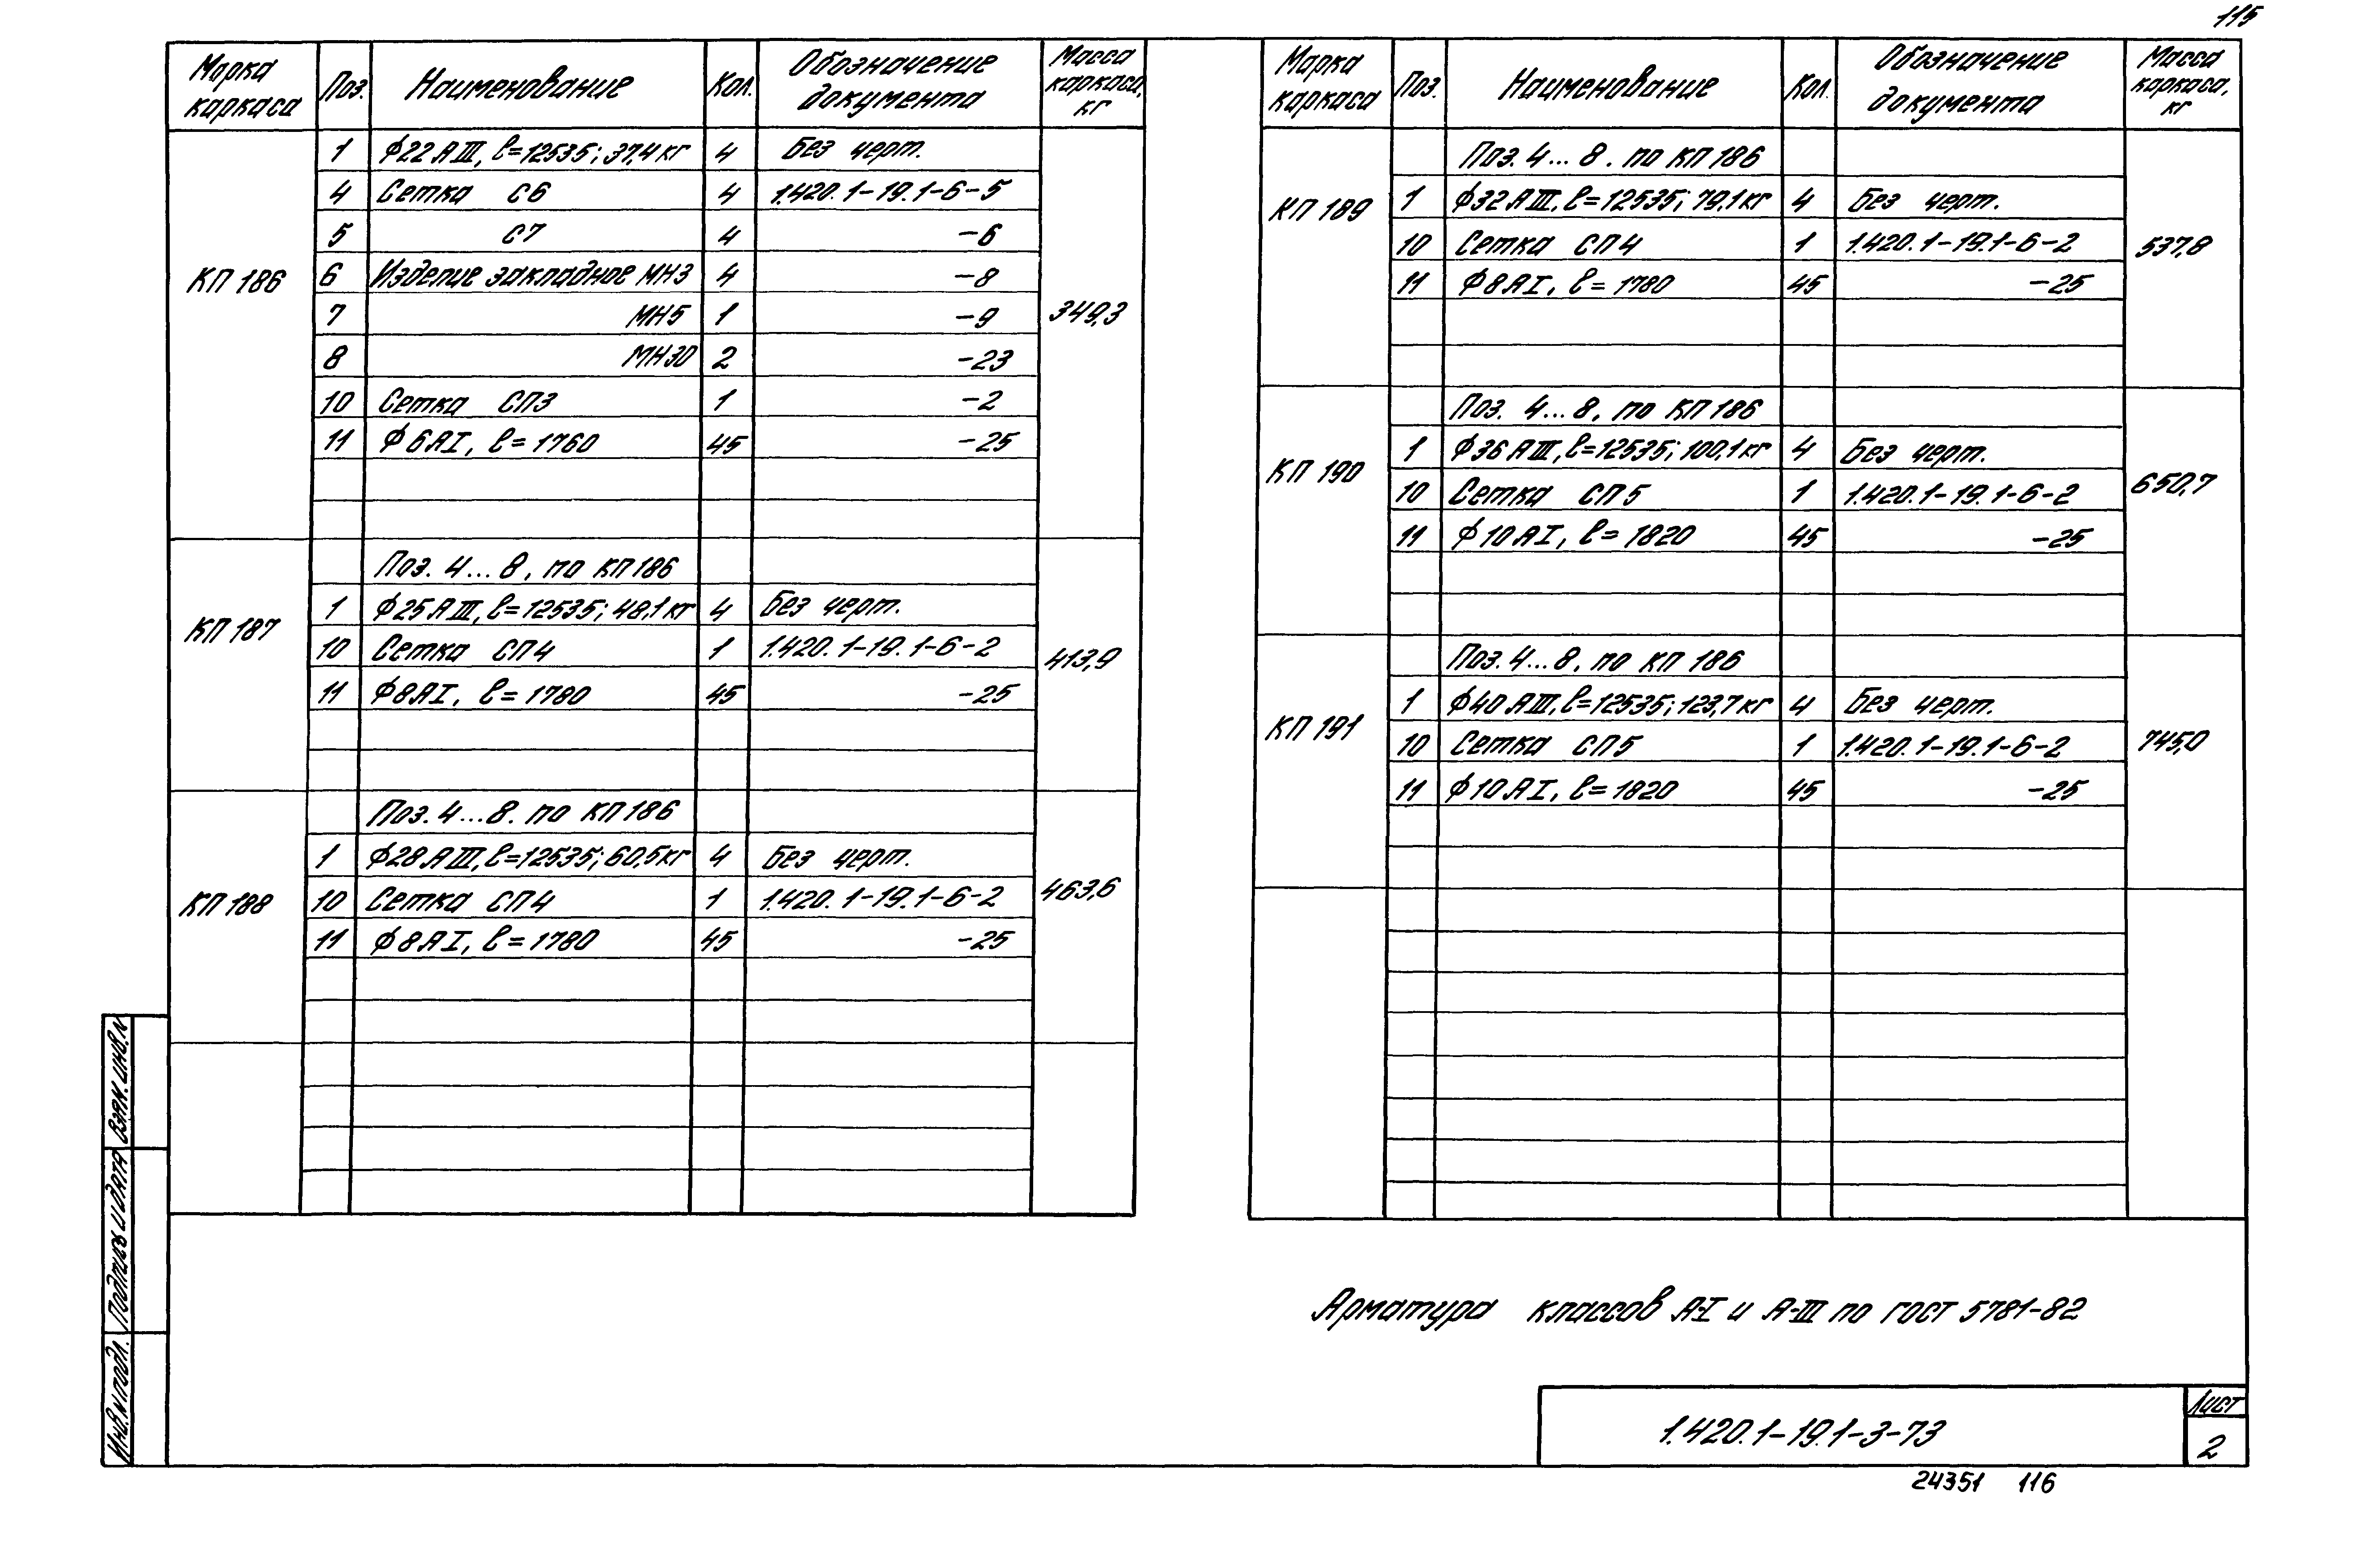 115
Марка каркаса Поз. Наименование Кол. Обозначение документа Масса каркаса, кг
КП 186 349,3
1 ф22 АIII, ℓ=12535; 37,4 кг 4 Без черт.
4 Сетка С6 4 1.420.1-19.1-6-5
5 С7 4 -6
6 Изделие закладное МН3 4 -8
7 МН5 1 -9
8 МН30 2 -23
10 Сетка СП3 1 -2
11 ф6АI, ℓ=1760 45 -25
КП 187 413,9
Поз. 4...8, по КП 186
1 ф25 АIII, ℓ=12535; 48,1 кг 4 Без черт.
10 Сетка СП4 1 1.420.1-19.1-6-2
11 ф8АI, ℓ=1780 45 -25
КП 188 463,6
Поз. 4...8. по КП 186
1 ф28 АIII, ℓ=12535; 60,5 кг 4 Без черт.
10 Сетка СП4 1 1.420.1-19.1-6-2
11 ф8АI, ℓ=1780 45 -25
Марка каркаса Поз. Наименование Кол. Обозначение документа Масса каркаса, кг
КП 189 537,8
Поз. 4...8. по КП 186
1 ф32 АIII, ℓ=12535; 79,1 кг 4 Без черт.
10 Сетка СП4 1 1.420.1-19.1-6-2
11 ф8АI, ℓ=1780 45 -25
КП 190 650,7
Поз. 4...8, по КП 186
1 ф36 АIII, ℓ=12535; 100,1 кг 4 Без черт.
10 Сетка СП5 1 1.420.1-19.1-6-2
11 ф10АI, ℓ=1820 45 -25
КП 191 745,0
Поз. 4...8, по КП 186
1 ф40 АIII, ℓ=12535; 123,7 кг 4 Без черт.
10 Сетка СП5 1 1.420.1-19.1-6-2
11 ф10АI, ℓ=1820 45 -25
Арматура классов А-I и А-III по ГОСТ 5781-82
1.420.1-19.1-3-73
Лист
2
24351 116
Инв.N подл.
Подпись и дата
Взам.инв.N